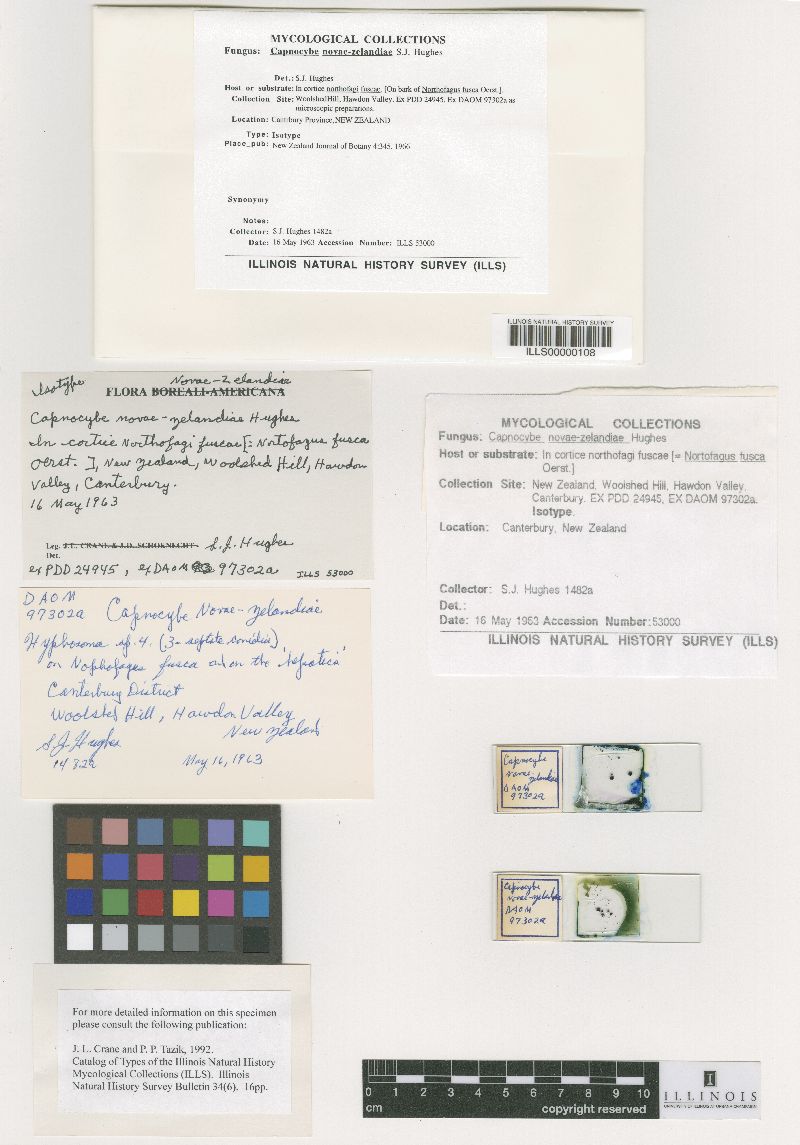 MYCOLOGICAL COLLECTIONS
Fungus: Capnocybe novae-zelandiae S.J. Hughes
Det.: S.J. Hughes
Host or substrate: In cortice northofagi fuscae, [On bark of Northofagus fusca Oerst.]
Collection Site: Woolshed Hill, Hawdon Valley. Ex PDD 24945. Ex DAOM 97302a as
microscopic preparations.
Location: Cantrbury Province, NEW ZEALAND
Type: Isotype
Place_pub: New Zealand Journal of Botany 4:345. 1966
Synonymy
Notes:
Collector: S.J. Hughes 1482a
Date: 16 May 1963 Accession Number: ILLS 53000
ILLINOIS NATURAL HISTORY SURVEY (ILLS)
ILLINOIS NATURAL HISTORY SURVEY
ILLS00000108
Isotype
Novae-Zelandiae
FLORA BOREALI-AMERICANA
Capnocybe novae-zelandiae Hughes
In cortice Northofagi fuscae [= Nortofagus fusca
Oerst. ], New Zealand, Woolshed Hill, Hawdon
Valley, Canterbury.
16 May 1963
Leg. J.L. CRANE & J.D. SCHOKNECHT S.J. Hughes
Det.
ex PDD 24945, ex DAOM 97302a ILLS 53000
MYCOLOGICAL COLLECTIONS
Fungus: Capnocybe novae-zelandiae Hughes
Host or substrate: In cortice northofagi fuscae [= Nortofagus fusca
Oerst.]
Collection Site: New Zealand, Woolshed Hill, Hawdan Valley,
Canterbury. EX PDD 24945, EX DAOM 97302a.
Isotype.
Location: Canterbury, New Zealand
Collector: S.J. Hughes 1482a
Det.:
Date: 16 May 1963 Accession Number: 53000
ILLINOIS NATURAL HISTORY SURVEY (ILLS)
DAOM
97302a
Capnocybe Novae-zelandiae
Hyphosoma sp. 4. (3-septate conidia)
on Nophofagus fusca and on the 'hepatica'
Canterbury District
Woolshed Hill, Hawdon Valley
New Zealand
S.J. Hughes
1482a
May 16, 1963
Capnocybe
Novae-
zelandiae
DAOM
97302a
Capnocybe
novae-zelandiae
DAOM
97302a
For more detailed information on this specimen
please consult the following publication:
J. L. Crane and P. P. Tazik, 1992.
Catalog of Types of the Illinois Natural History
Mycological Collections (ILLS). Illinois
Natural History Survey Bulletin 34(6). 16pp.
0 1 2 3 4 5 6 7 8 9 10
cm
copyright reserved
I
ILLINOIS
UNIVERSITY OF ILLINOIS AT URBANA-CHAMPAIGN